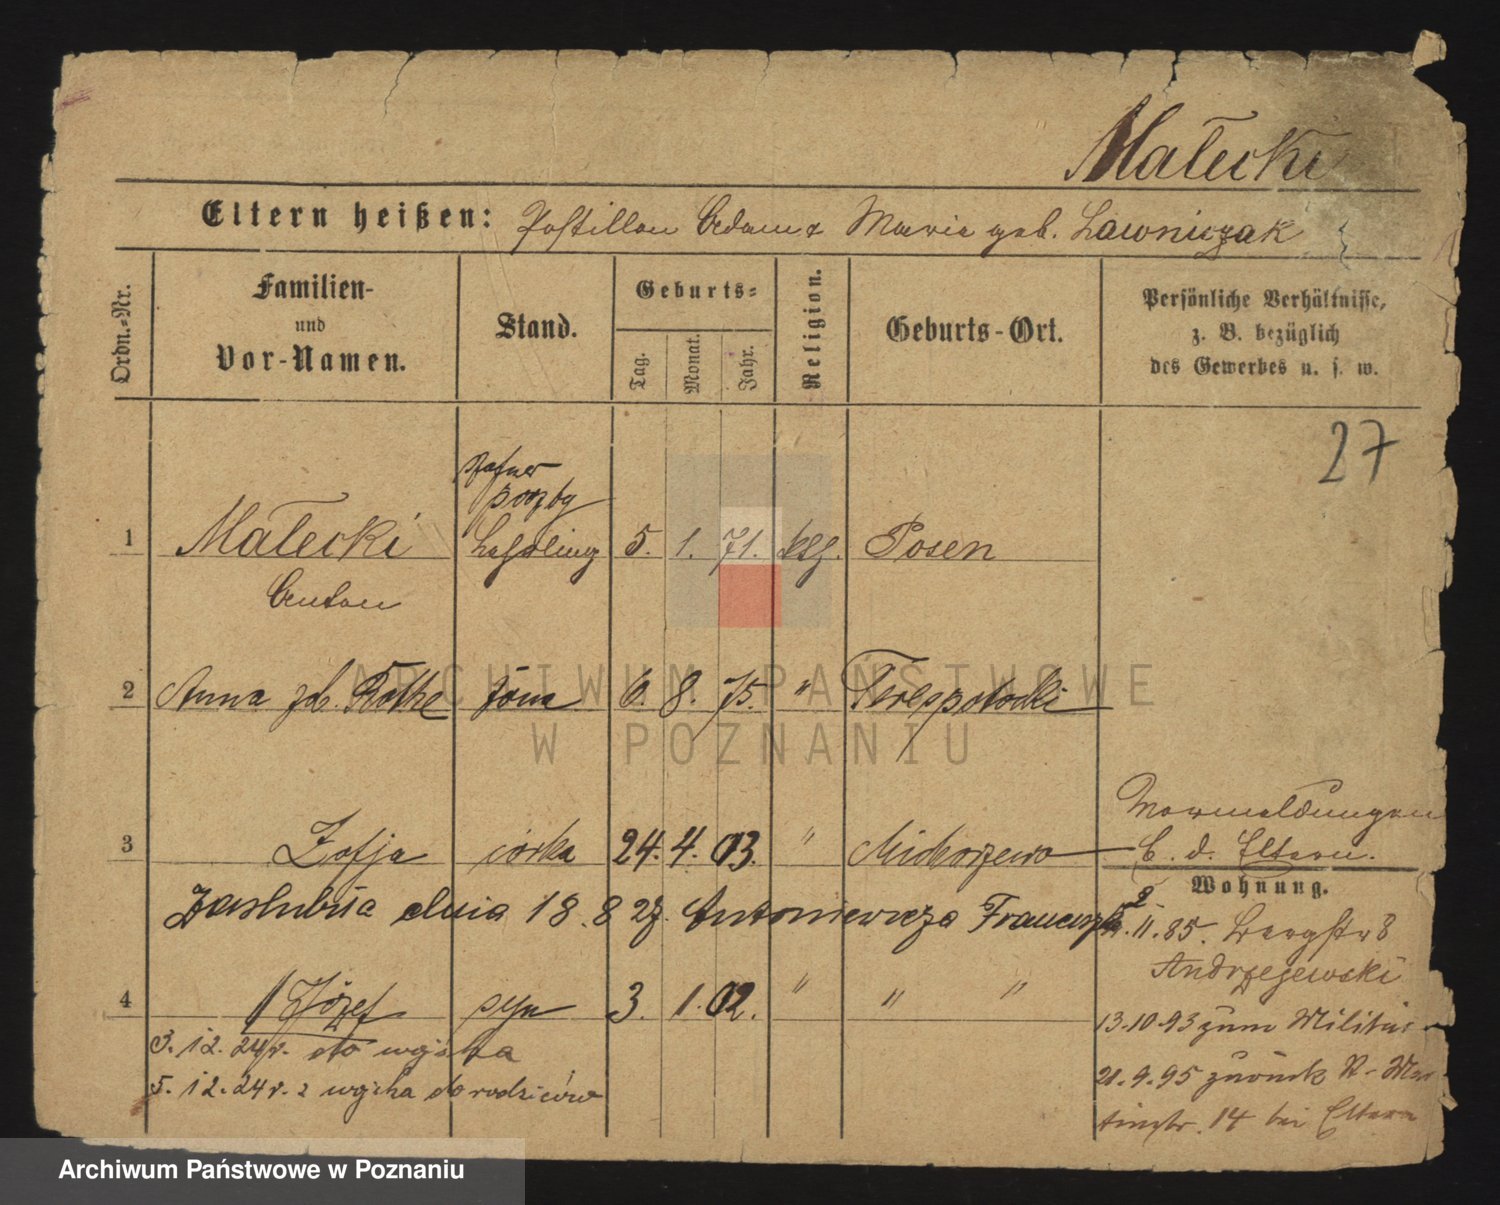 Małecki
Eltern heißen: Postillon Adam & Maria geb. Lawniczak
Ordn.-Nr.
Familien-
und
Vor-Namen.
Stand.
Geburts-
Tag.
Monat.
Jahr.
Religion.
Geburts-Ort.
Persönliche Verhältnisse,
z. B. bezüglich
des Gewerbes u. s. w.
27
1 Małecki 5. 1. 71. ktl. Posen
Anton
2 Anna geb. Rothe żona 6. 8. 75. " Terespotocki
3 Zofja córka 24. 4. 03. " Michorzewo
Vormeldungen
b. d. Eltern.
Wohnung.
Zaślubiła dnia 18.8 27. Antoniewicza Franciszka
11.85. Bergstr 8
Andrzejewski
4 Józef syn 3. 1. 02. " " "
13.10.93 zum Militär
3. 12. 24 r. do wojska
21.9.95 zurück v. Mar-
5. 12. 24 r. z wojska do rodziców
tinstr. 14 bei Eltern
ARCHIWUM PAŃSTWOWE
W POZNANIU
Archiwum Państwowe w Poznaniu